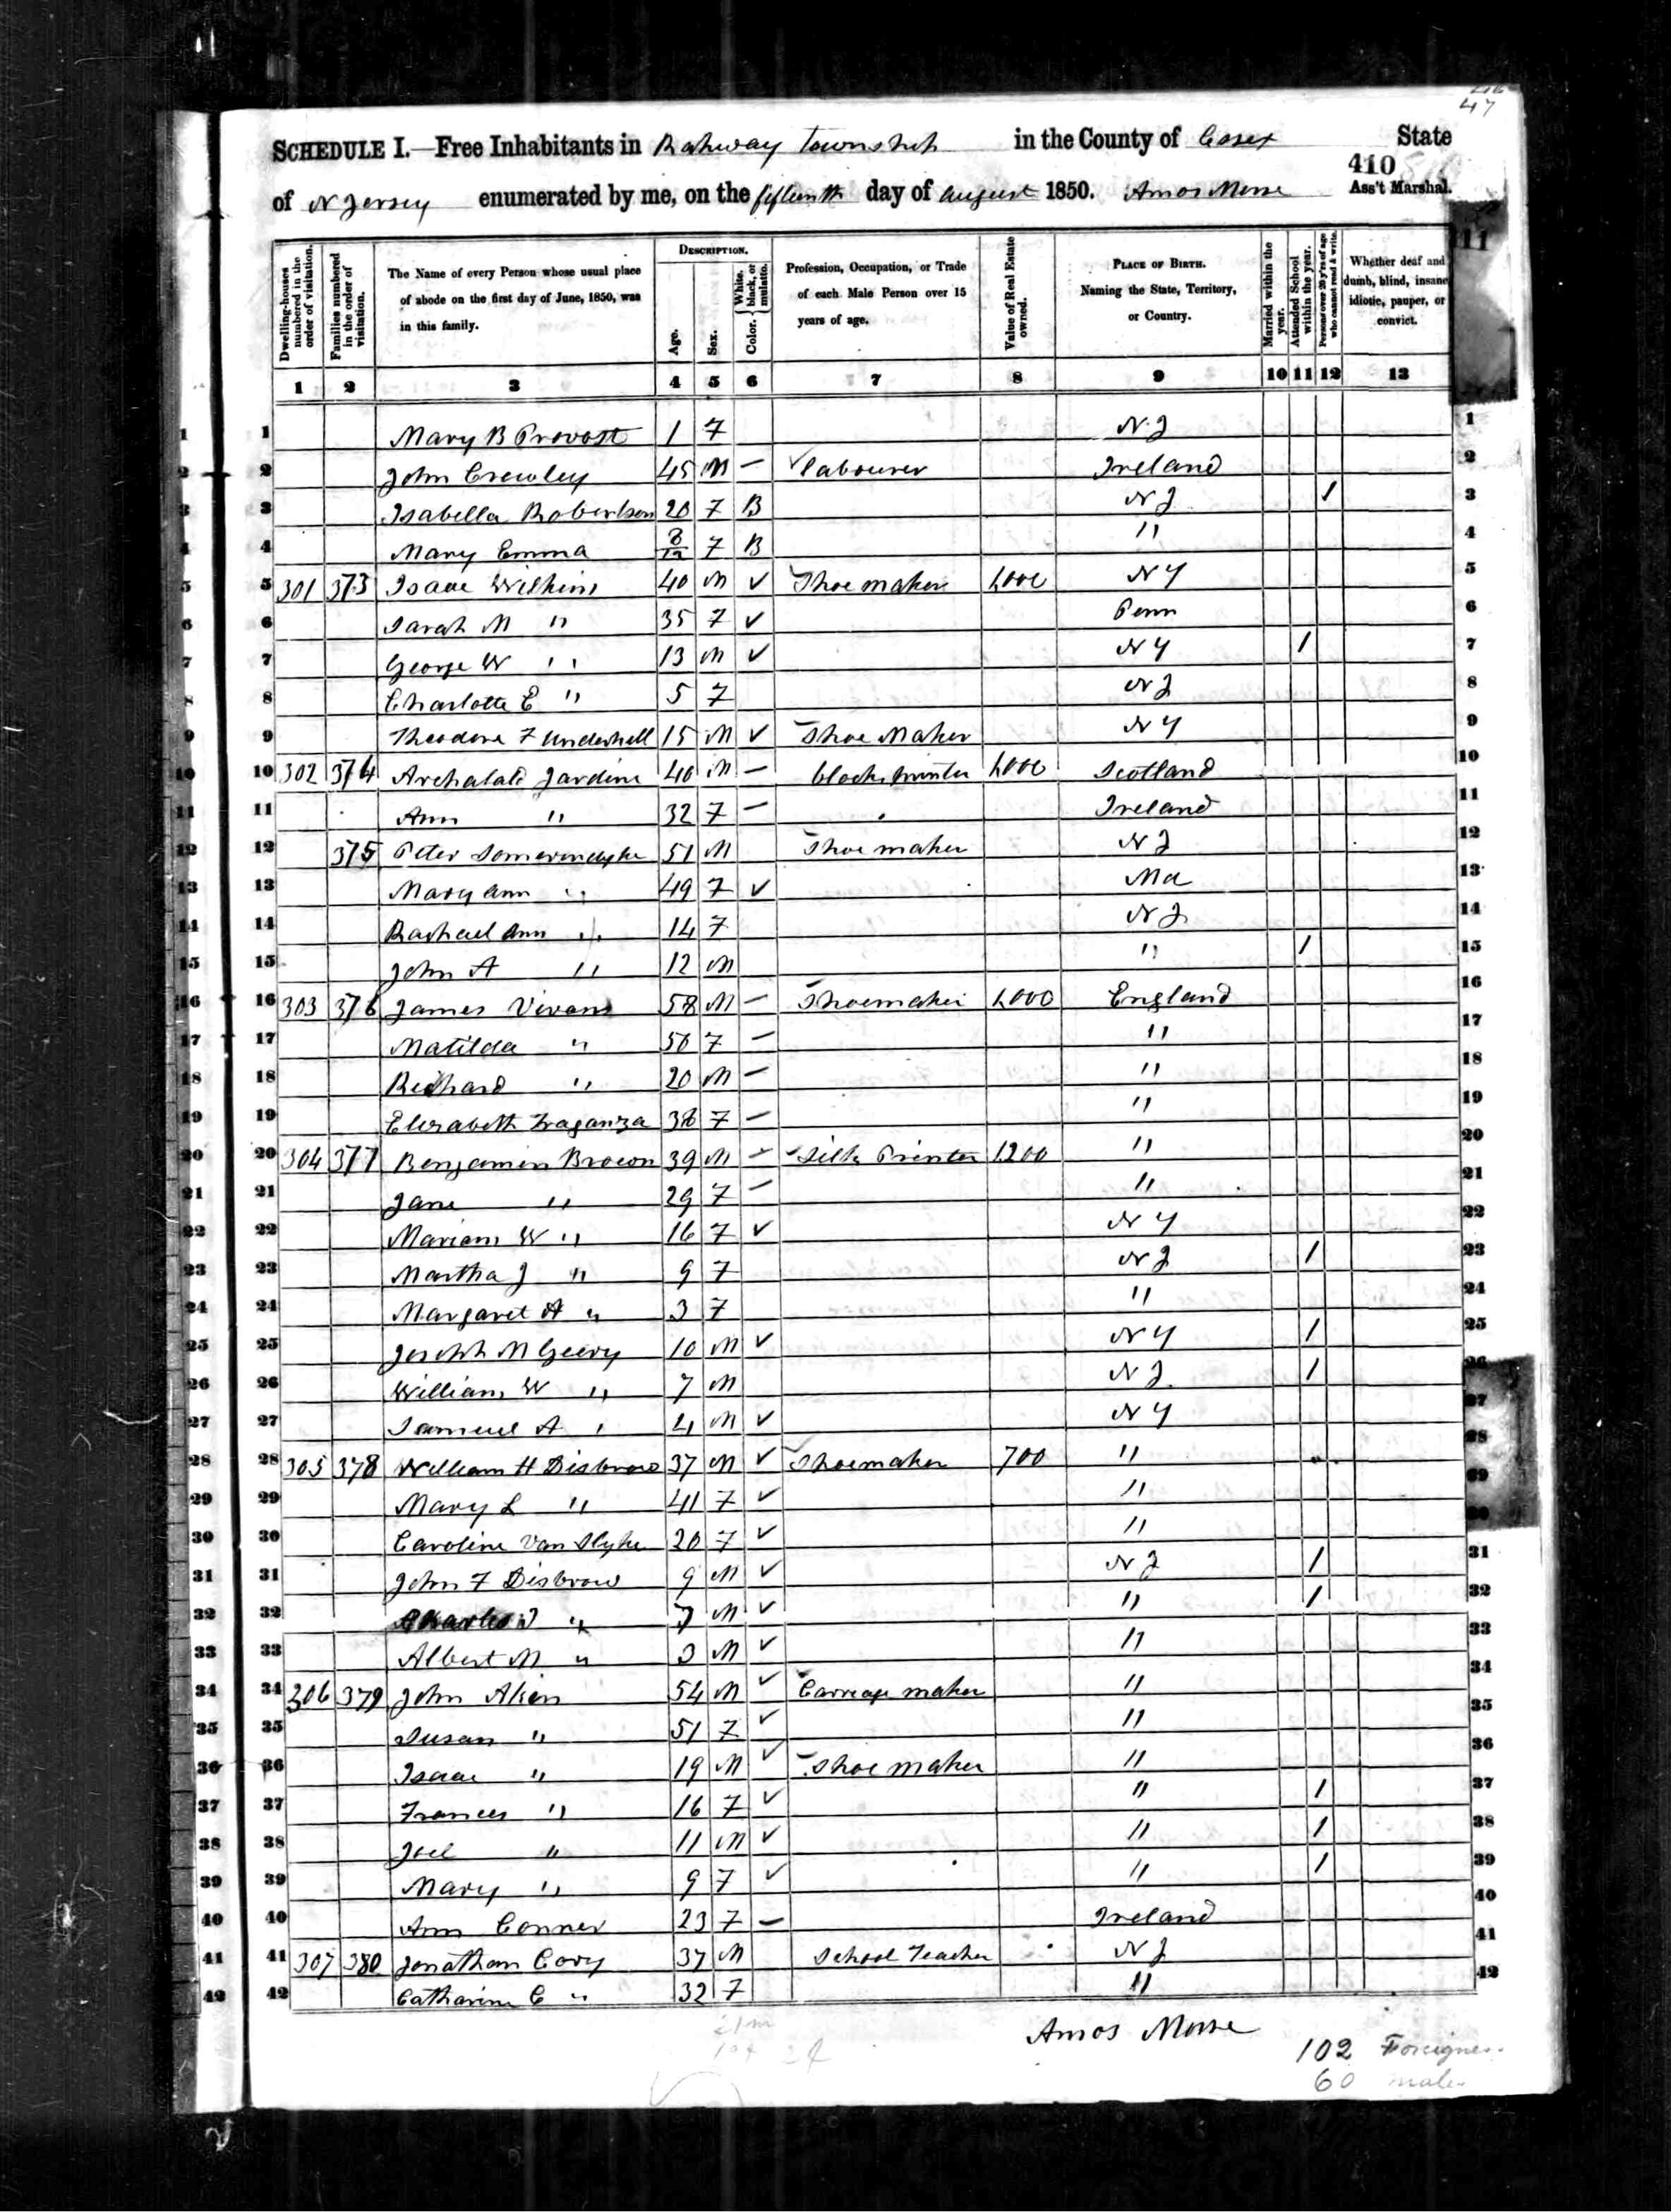 47
SCHEDULE I.—Free Inhabitants in Rahway Township in the County of Essex State
410
of N Jersey enumerated by me, on the fifteenth day of August 1850. Amos Morse Ass't Marshal.
Dwelling-houses numbered in the order of visitation. Families numbered in the order of visitation. The Name of every Person whose usual place of abode on the first day of June, 1850, was in this family. DESCRIPTION. Age. Sex. Color. White, black, or mulatto. Profession, Occupation, or Trade of each Male Person over 15 years of age. Value of Real Estate owned. PLACE OF BIRTH. Naming the State, Territory, or Country. Married within the year. Attended School within the year. Persons over 20 y'rs of age who cannot read & write. Whether deaf and dumb, blind, insane, idiotic, pauper, or convict.
1 2 3 4 5 6 7 8 9 10 11 12 13
1 1 Mary B Provost 1 F N J 1
2 2 John Crowley 45 M — labourer Ireland 2
3 3 Isabella Robertson 20 F B N J / 3
4 4 Mary Emma 8/12 F B " 4
5 5 301 373 Isaac Wilkins 40 M ✓ Shoe maker 1,000 N Y 5
6 6 Sarah M " 35 F ✓ Penn 6
7 7 George W " 13 M ✓ N Y / 7
8 8 Charlotte E " 5 F N J 8
9 9 Theodore F Underhill 15 M ✓ Shoe Maker N Y 9
10 10 302 374 Archabald Jardine 40 M — block printer 1,000 Scotland 10
11 11 Ann " 32 F — Ireland 11
12 12 375 Peter Somerindyke 51 M Shoe maker N J 12
13 13 Mary Ann " 49 F ✓ Md 13
14 14 Rachael Ann " 14 F N J 14
15 15 John A " 12 M " / 15
16 16 303 376 James Vivans 58 M — Shoemaker 1,000 England 16
17 17 Matilda " 56 F — " 17
18 18 Richard " 20 M — " 18
19 19 Elizabeth Traganza 38 F — " 19
20 20 304 377 Benjamin Brown 39 M — Silk Printer 1200 " 20
21 21 Jane " 29 F — " 21
22 22 Mariam W " 16 F ✓ N Y 22
23 23 Martha J " 9 F N J / 23
24 24 Margaret A " 3 F " 24
25 25 Joseph M Geery 10 M ✓ N Y / 25
26 26 William W " 7 M N J / 26
27 27 Samuel A " 4 M ✓ N Y 27
28 28 305 378 William H Disbrow 37 M ✓ Shoemaker 700 " 28
29 29 Mary L " 41 F ✓ " 29
30 30 Caroline Van Slyke 20 F ✓ " 30
31 31 John F Disbrow 9 M ✓ N J / 31
32 32 Charles " 7 M ✓ " / 32
33 33 Albert M " 3 M ✓ " 33
34 34 306 379 John Aken 54 M ✓ Carriage maker " 34
35 35 Susan " 51 F ✓ " 35
36 36 Isaac " 19 M ✓ Shoe maker " 36
37 37 Frances " 16 F ✓ " / 37
38 38 Joel " 11 M ✓ " / 38
39 39 Mary " 9 F ✓ " / 39
40 40 Ann Conner 23 F — Ireland 40
41 41 307 380 Jonathan Cory 37 M School Teacher N J 41
42 42 Catharine C " 32 F " 42
Amos Morse
102 Foreigner
60 male